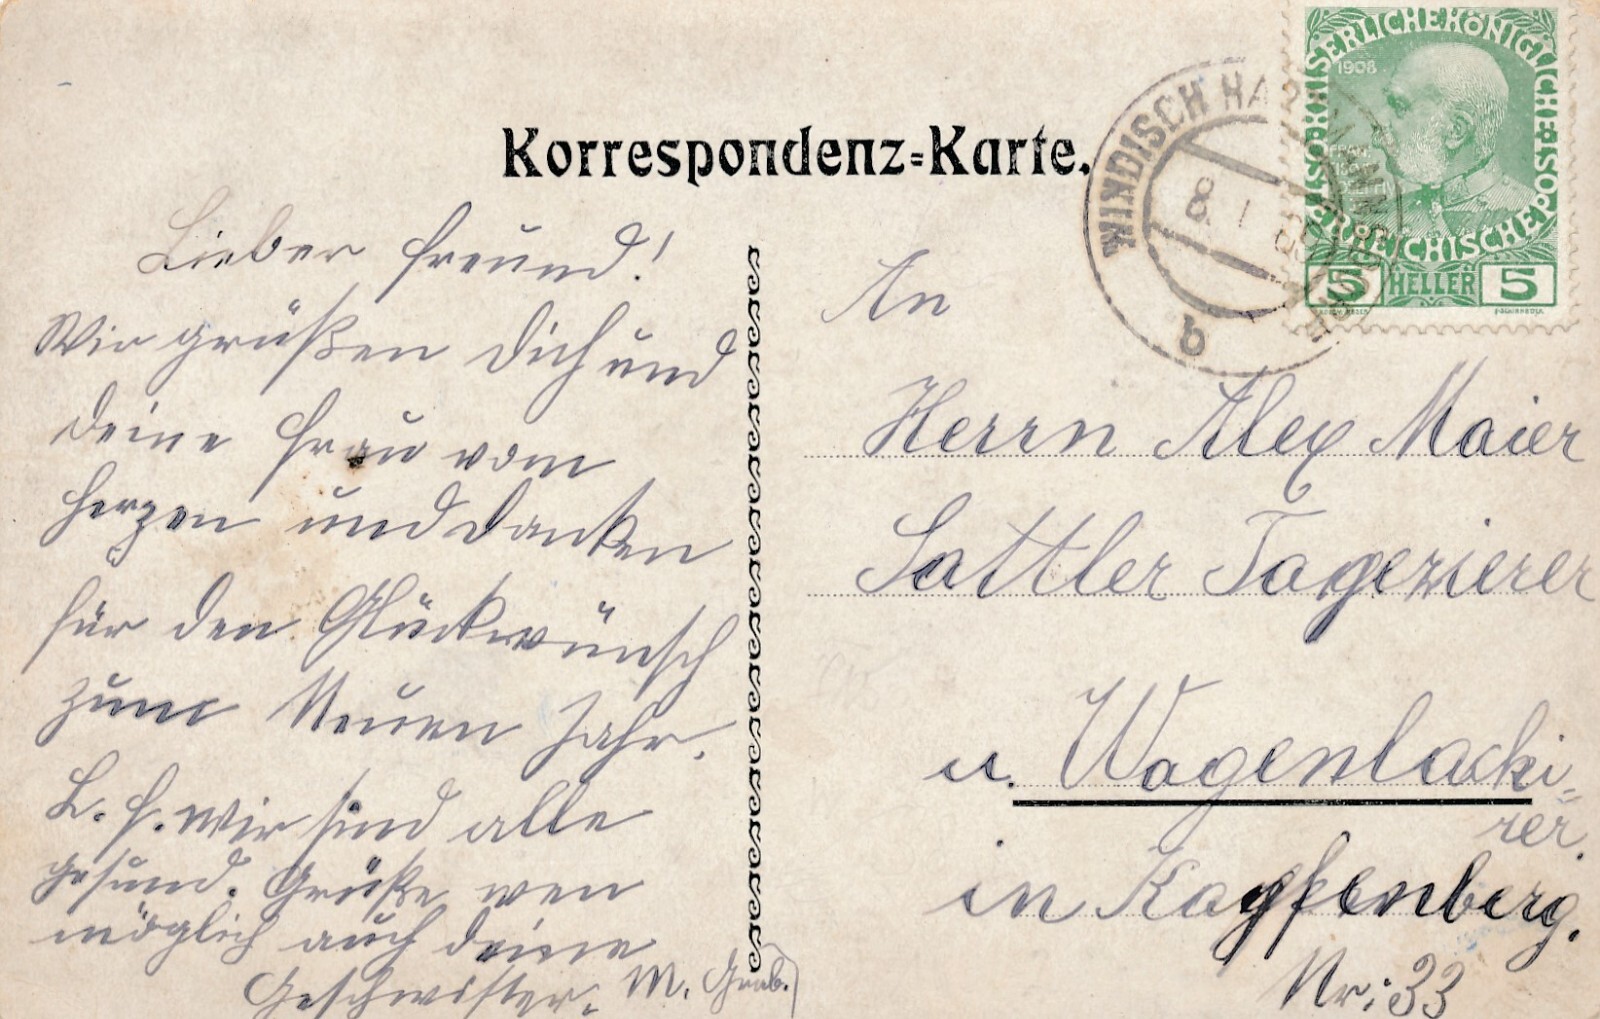 Korrespondenz-Karte.
KAISERLICHE KÖNIGLICHE ÖSTERREICHISCHE POST
1908
FRANZ
JOSEF I
5 HELLER 5
WINDISCH HARTMANNSDORF
8. I
b
Lieber Freund!
Wir grüßen Dich und
deine Frau vom
Herzen und danken
für den Glückwünsch
zum Neuen Jahr.
L. F. wir sind alle
gesund. Grüße wen
möglich auch deine
Geschwister. M. Grab.
An
Herrn Alex Maier
Sattler Tagezierer
u. Wagenlacki-
rer.
in Kapfenberg.
Nr: 33